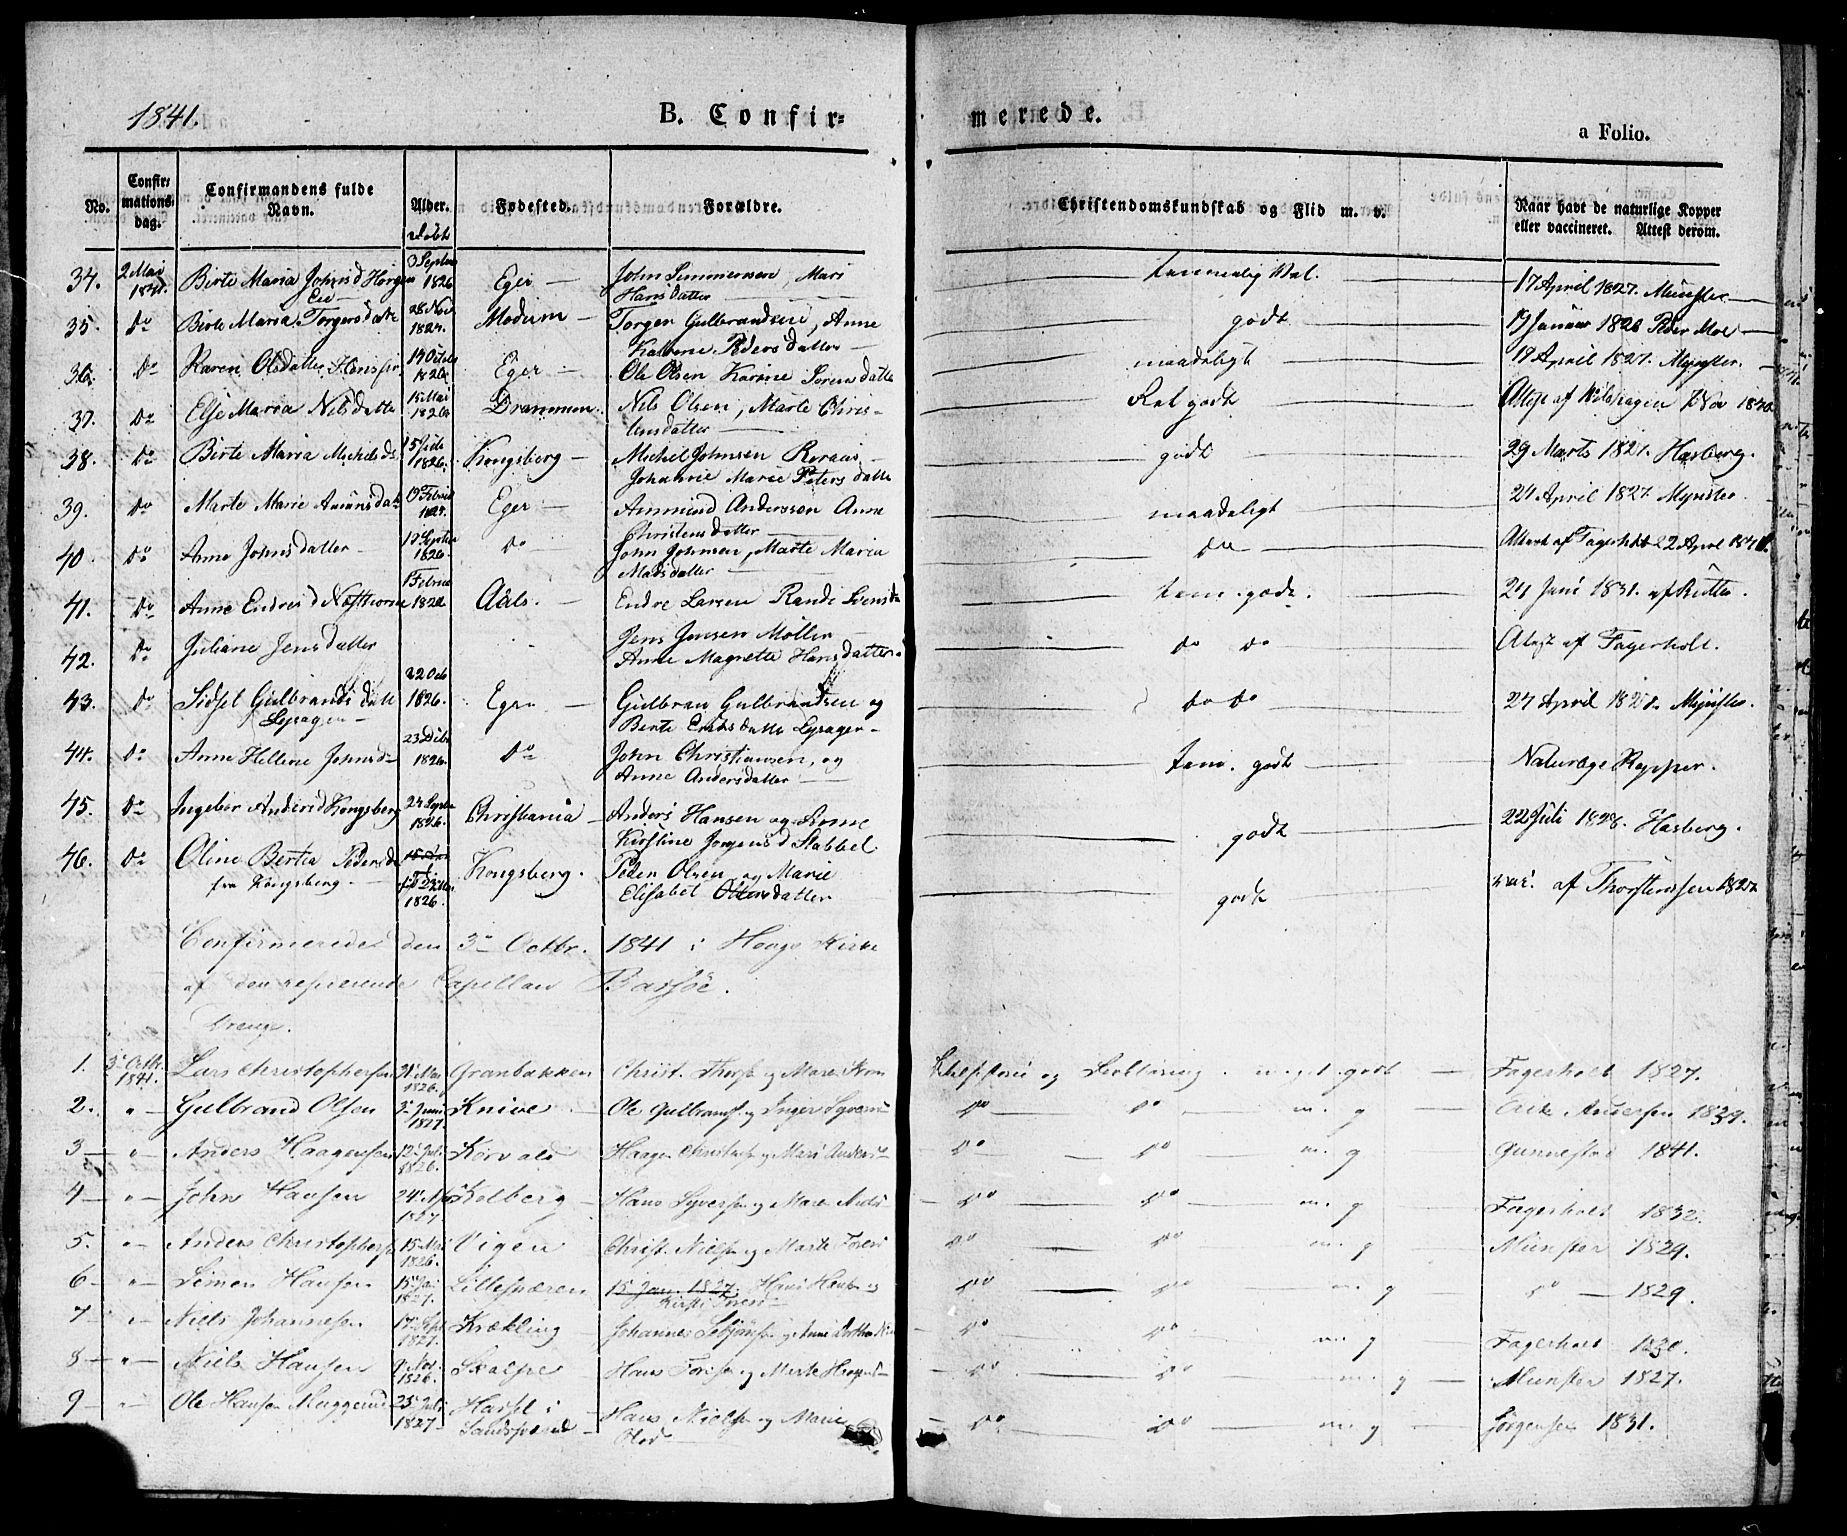 1841.
B. Confir=
merede.
a Folio.
No.
Confir=
mations=
dag.
Confirmandens fulde
Navn.
Alder.
Fødested.
Forældre.
Christendomskundskab og Flid m. v.
Naar havt de naturlige Kopper
eller vaccineret. Attest derom.
34. 2 Mai 1841. Birte Maria Johnsd Horgen Eie 3 Septbr 1826 Eger John Simmensen, Mari Hansdatter temmelig Vel. 17 April 1827. Münster
35. Do Birte Maria Torgersdatte 28 Nov 1824. Modum Torger Gulbrandsen, Anne Pedersdatter godt 19 Januar 1826 Peder Moe
36. Do Karen Olsdatter 1826 Eger Ole Olsen Karine Sorensdatte maadeligt 19 April 1827. Mynster
37. Do Else Maria Nilsdatte 15 Mai 1826 Drammen. Nils Olsen, Marte Christensdatter Ret godt Attest af
38. Do Birte Maria Michelsd 15 Juli 1826. Kongsberg Michel Johnsen Johanne Marie Petersdatte godt 29 Marts 1827. Hasberg.
39. Do Marte Marie Amunsdatt Eger Ammund Anderssøn Anne Christensdatter maadeligt 24 April 1827 Mynster
40. Do Anne Johnsdatter 19 Septbr 1826. Do John Johnsen, Marte Maria Madsdatter Do Attest af Fagerholt 22 April 1841.
41. Do Anne Endresd 1 Februar Aals. Endre Larsen Rande tem. godt. 24 Juni 1831. af
42. Do Juliane Jensdatter Jens Jensen Møller Anne Magrette Hansdatter. Do Do Attest af Fagerholt.
43. Do Sidsel Gulbrandsdatt Lysager 22 Octb 1826. Eger Gulbran Gulbrandsen og Berte Eriksdatte Lysager Do Do 24 April 1828 Mynster.
44. Do Anne Hellene Johnsd 23 Decbr 1826. Do John Christiansen, og Anne Andersdatter tem. godt Naturlige Kopper.
45. Do Ingebor Andersd Kongsberg 24 Septbr 1826. Christiania Anders Hansen og Kirstine Jorgensd Stabbel godt 22 Juli 1828. Hasberg.
46. Do Oline Bertea Pedersd fra Kongsberg. 1826. Kongsberg. Peder Olsen og Marie Elisabet Olsensdatter godt vac. af Thorstenssen 1827
Confirmerede den 3. Octbr. 1841 i Houg Kirke
af den residerende Capellan
Drenge.
1. 3 Octbr. 1841. Lars Christophersen 21 1826. Granbakken Christ. og Mare og meget godt Fagerholt 1827.
2. " Gulbrand Olsen 3 Juni 1827. Knive Ole Gulbrands. og Inger Do Do m. g Andersen 1839.
3 " Anders Haagensen 12 Juli 1826. Korvald Haagen Christophs og Mari Anders Do Do m. g Gunnestad 1841.
4 " John Hansen 24 1827. Kolberg Hans Syversen og Marte Do Do m. g Fagerholt 1832.
5. " Anders Christophers 15 Mai 1826. Vigen Christ. Nielsen og Marte Do Do m. g Münster 1829.
6 " Simen Hansen 15 Jan 1827. 15 Jan. 1827. Hans og Kirsti Do Do m. g Do 1829.
7 " Niels Johannesen 17 Sept 1827. Krækling Johannes og Anne Do Do m. g Fagerholt 1830.
8 " Niels Hansen 9 Nov. 1826. Hans og Marte Haagens Do Do m. g Münster 1827.
9 " Ole Hansen Muggerud 25 Juli 1827 i Hans Nielsen og Marie Olsd Do Do m. g Jørgensen 1831.